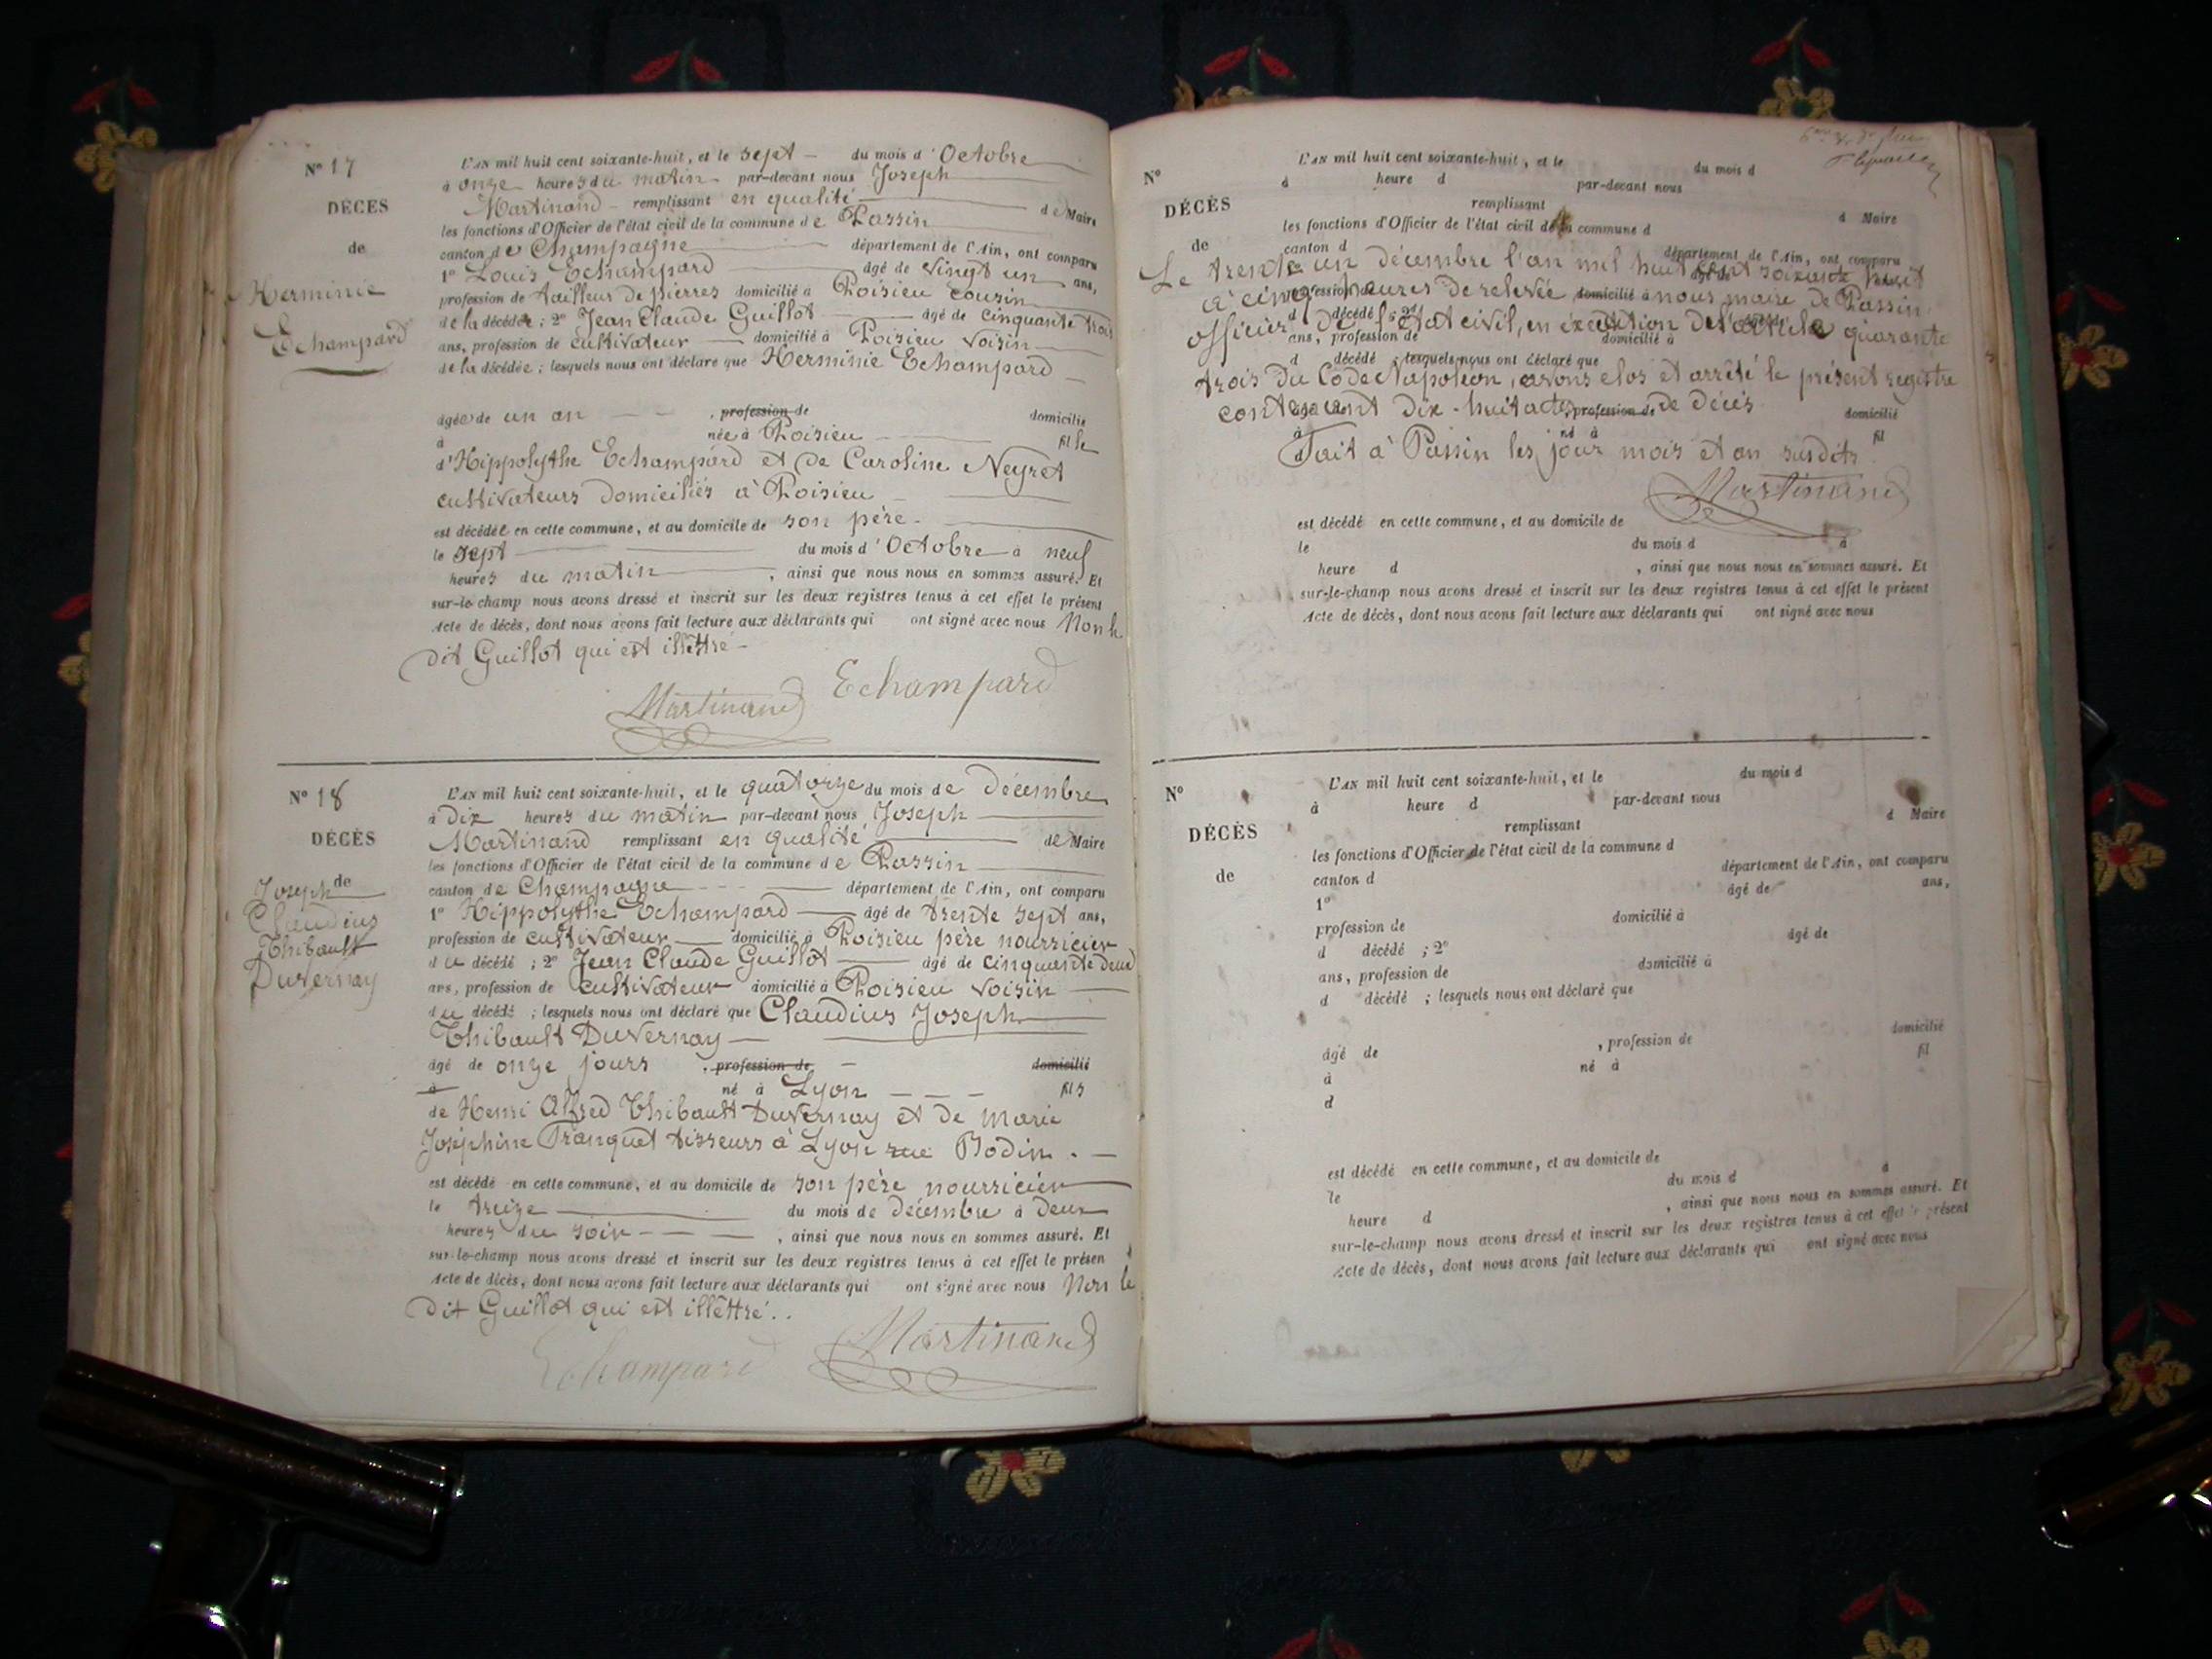 N° 17
DÉCÈS
de
Herminie
Echampard
L'AN mil huit cent soixante-huit, et le sept du mois d'Octobre
à onze heures du matin par-devant nous Joseph
Martinand remplissant en qualité de Maire
les fonctions d'Officier de l'état civil de la commune de Passin
canton de Champagne département de l'Ain, ont comparu
1° Louis Echampard âgé de vingt un ans,
profession de tailleur de pierres domicilié à Poisieu cousin
de la décédée ; 2° Jean Claude Guillot âgé de cinquante trois
ans, profession de cultivateur domicilié à Poisieu voisin
de la décédée ; lesquels nous ont déclaré que Herminie Echampard
âgée de un an , profession de domicilié
à née à Poisieu fille
d'Hippolythe Echampard et de Caroline Neyret
cultivateurs domiciliés à Poisieu
est décédée en cette commune, et au domicile de son père
le sept du mois d'Octobre à neuf
heures du matin , ainsi que nous nous en sommes assuré. Et
sur-le-champ nous avons dressé et inscrit sur les deux registres tenus à cet effet le présent
Acte de décès, dont nous avons fait lecture aux déclarants qui ont signé avec nous Non le
dit Guillot qui est illêttré
Martinand Echampard
N° 18
DÉCÈS
de
Joseph
Claudius
Thibault
Duvernay
L'AN mil huit cent soixante-huit, et le quatorze du mois de décembre
à dix heures du matin par-devant nous Joseph
Martinand remplissant en qualité de Maire
les fonctions d'Officier de l'état civil de la commune de Passin
canton de Champagne département de l'Ain, ont comparu
1° Hippolythe Echampard âgé de trente sept ans,
profession de cultivateur domicilié à Poisieu père nourricier
du décédé ; 2° Jean Claude Guillot âgé de cinquante deux
ans, profession de cultivateur domicilié à Poisieu voisin
du décédé ; lesquels nous ont déclaré que Claudius Joseph
Thibault Duvernay
âgé de onze jours , profession de domicilié
à né à Lyon fils
de Henri Alfred Thibault Duvernay et de Marie
Joséphine Franquet tisseurs à Lyon rue Bodin.
est décédé en cette commune, et au domicile de son père nourricier
le treize du mois de décembre à deux
heures du soir , ainsi que nous nous en sommes assuré. Et
sur-le-champ nous avons dressé et inscrit sur les deux registres tenus à cet effet le présen
Acte de décès, dont nous avons fait lecture aux déclarants qui ont signé avec nous Non le
dit Guillot qui est illêttré..
Echampard Martinand
N°
DÉCÈS
de
L'AN mil huit cent soixante-huit, et le du mois d
à heure d par-devant nous
remplissant d Maire
les fonctions d'Officier de l'état civil de la commune d
canton d département de l'Ain, ont comparu
Le trente un décembre l'an mil huit cent soixante huit
à cinq heures de relevée nous maire de Passin
profession domicilié à
officier de l'état civil, en éxecution de l'article quarante
d décédé ; 2°
ans, profession de domicilié à
d décédé ; lesquels nous ont déclaré que
trois du Code Napoléon, avons clos et arrêté le présent registre
contenant dix-huit actes de décès
profession de domicilié
à né à fil
Fait à Passin les jour mois et an susdits.
Martinand
est décédé en cette commune, et au domicile de
le du mois d à
heure d , ainsi que nous nous en sommes assuré. Et
sur-le-champ nous avons dressé et inscrit sur les deux registres tenus à cet effet le présent
Acte de décès, dont nous avons fait lecture aux déclarants qui ont signé avec nous
N°
DÉCÈS
de
L'AN mil huit cent soixante-huit, et le du mois d
à heure d par-devant nous
remplissant d Maire
les fonctions d'Officier de l'état civil de la commune d
canton d département de l'Ain, ont comparu
1° âgé de ans,
profession de domicilié à
d décédé ; 2° âgé de
ans, profession de domicilié à
d décédé ; lesquels nous ont déclaré que
âgé de , profession de domicilié
à né à fil
d
est décédé en cette commune, et au domicile de
le du mois d à
heure d , ainsi que nous nous en sommes assuré. Et
sur-le-champ nous avons dressé et inscrit sur les deux registres tenus à cet effet le présent
Acte de décès, dont nous avons fait lecture aux déclarants qui ont signé avec nous